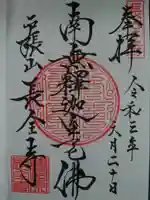 奉拜
令和三年
六月二十日
南無釋迦牟尼佛
長全寺